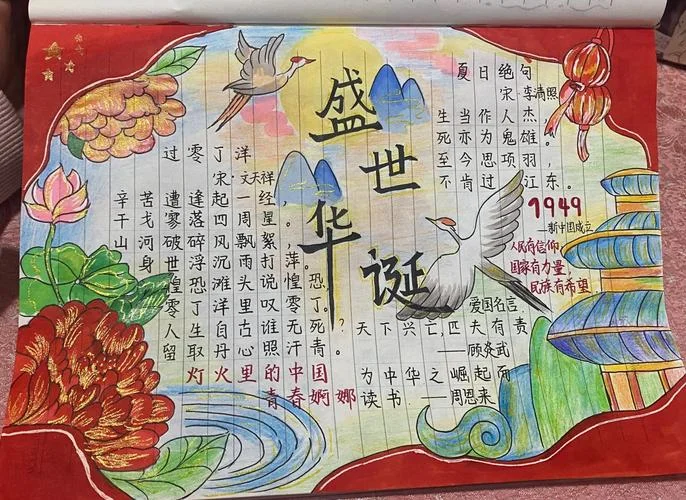 盛世华诞
过零丁洋
宋·文天祥
辛苦遭逢起一经，
干戈寥落四周星。
山河破碎风飘絮，
身世浮沉雨打萍。
惶恐滩头说惶恐，
零丁洋里叹零丁。
人生自古谁无死？
留取丹心照汗青。
灯火里的中国
青春婀娜
夏日绝句
宋·李清照
生当作人杰，
死亦为鬼雄。
至今思项羽，
不肯过江东。
1949
—新中国成立
人民有信仰，
国家有力量，
民族有希望
爱国名言
天下兴亡，匹夫有责
——顾炎武
为中华之崛起而
读书——周恩来